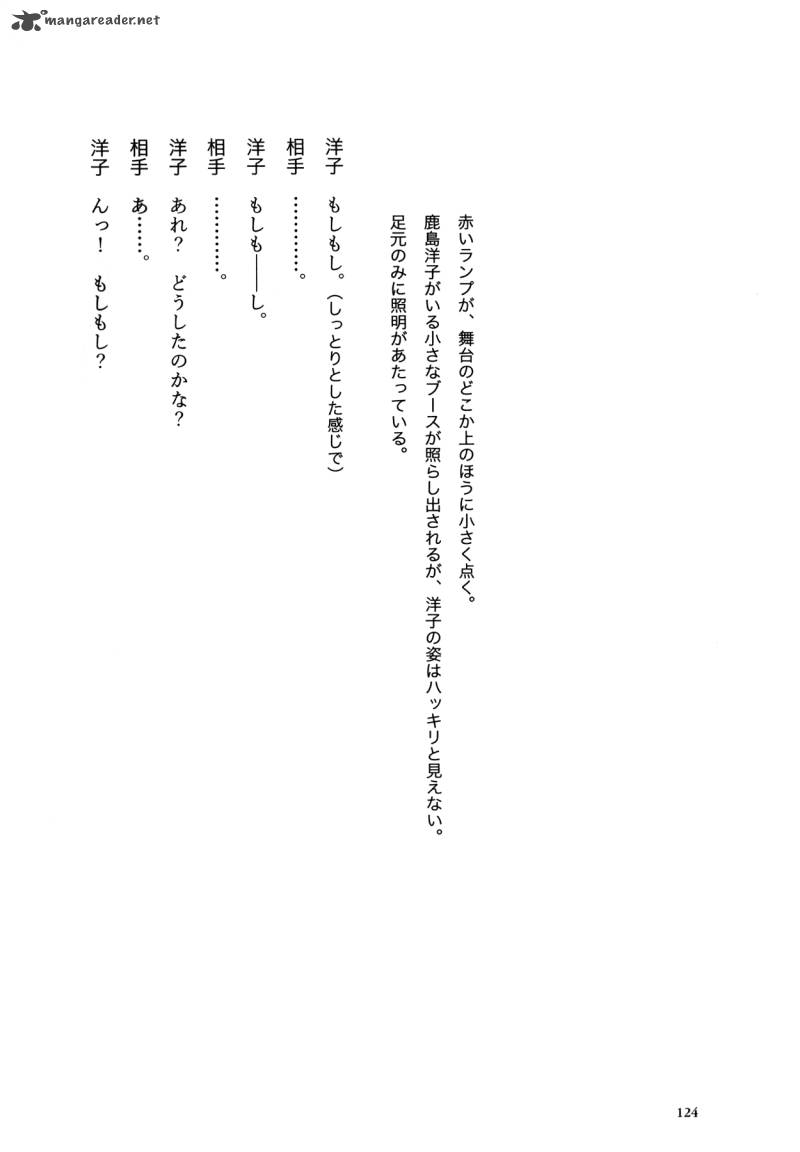 mangareader.net
赤いランプが、舞台のどこか上のほうに小さく点く。
鹿島洋子がいる小さなブースが照らし出されるが、洋子の姿はハッキリと見えない。
足元のみに照明があたっている。
洋子　もしもし。(しっとりとした感じで)
相手　…………。
洋子　もしも――し。
相手　…………。
洋子　あれ？　どうしたのかな？
相手　あ……。
洋子　んっ！　もしもし？
124